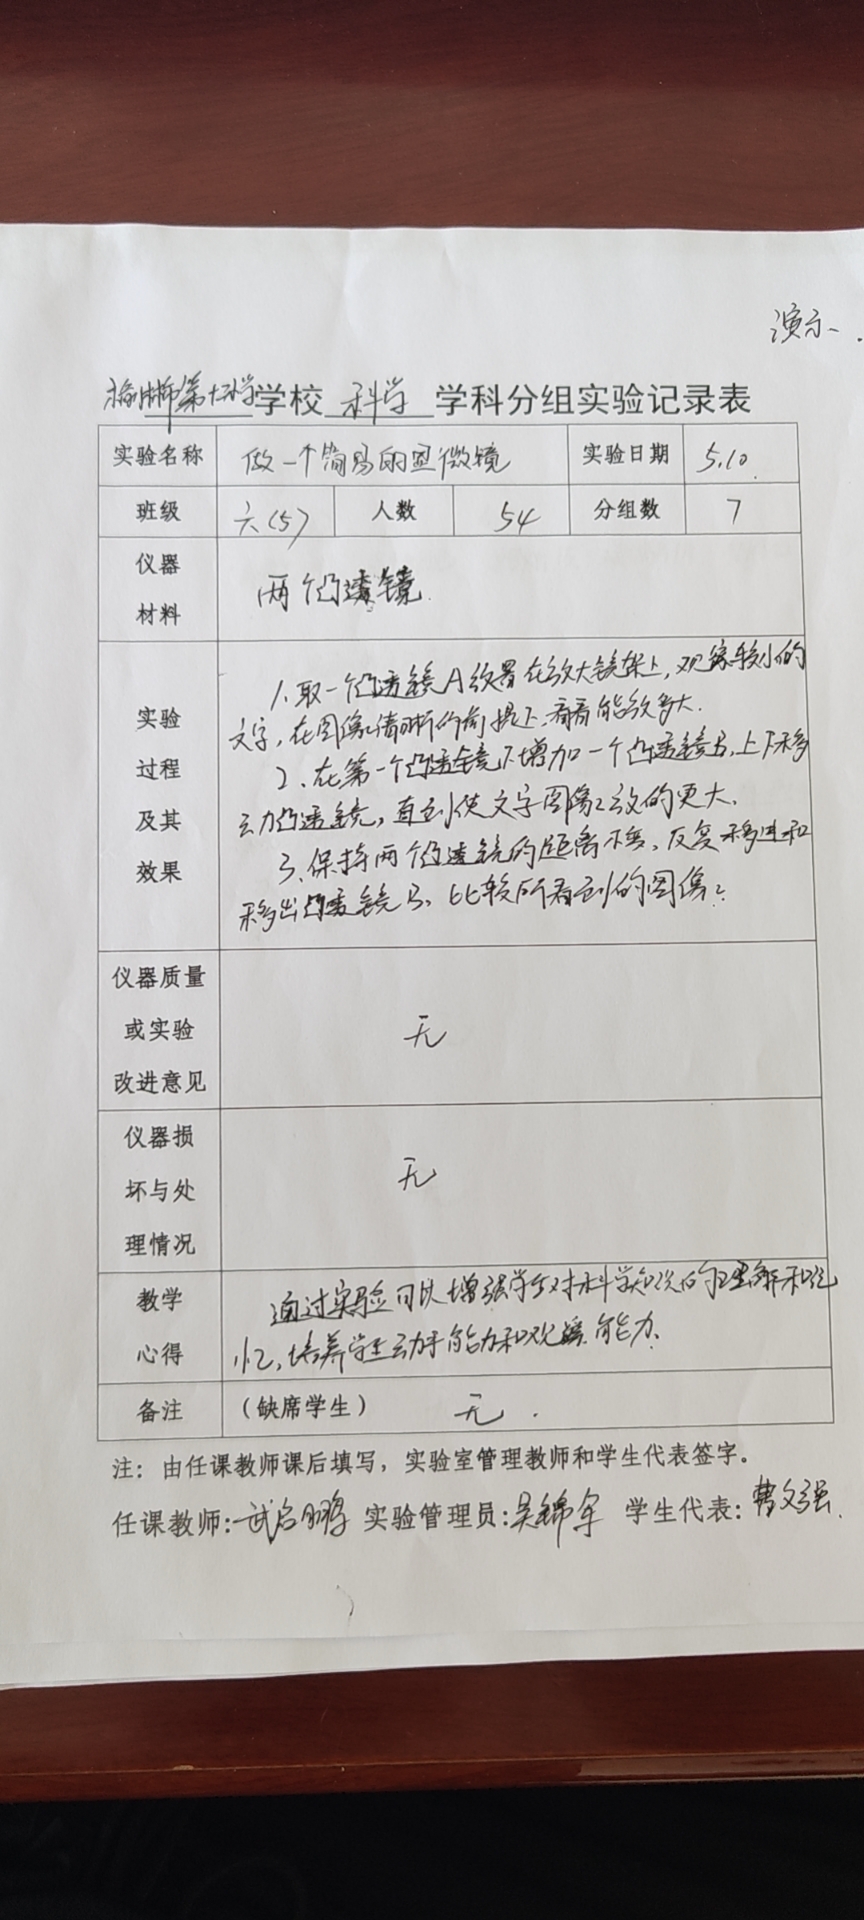 演示、
第十小学学校 科学 学科分组实验记录表
实验名称 做一个简易的显微镜 实验日期 5.10.
班级 六(5) 人数 54 分组数 7
仪器
材料
两个凸透镜.
实验
过程
及其
效果
1、取一个凸透镜A放置在放大镜架上,观察较小的
文字,在图像清晰的前提下,看看能放多大.
2、在第一个凸透镜下增加一个凸透镜B,上下移
动凸透镜,直到使文字图像放的更大.
3、保持两个凸透镜的距离不变、反复移进和
移出凸透镜B、比较所看到的图像?
仪器质量
或实验
改进意见
无
仪器损
坏与处
理情况
无
教学
心得
通过实验可以增强学生对科学知识的理解和记
忆,培养学生动手能力和观察能力.
备注 (缺席学生) 无.
注:由任课教师课后填写,实验室管理教师和学生代表签字。
任课教师: 实验管理员:吴锦军 学生代表:曹文强.